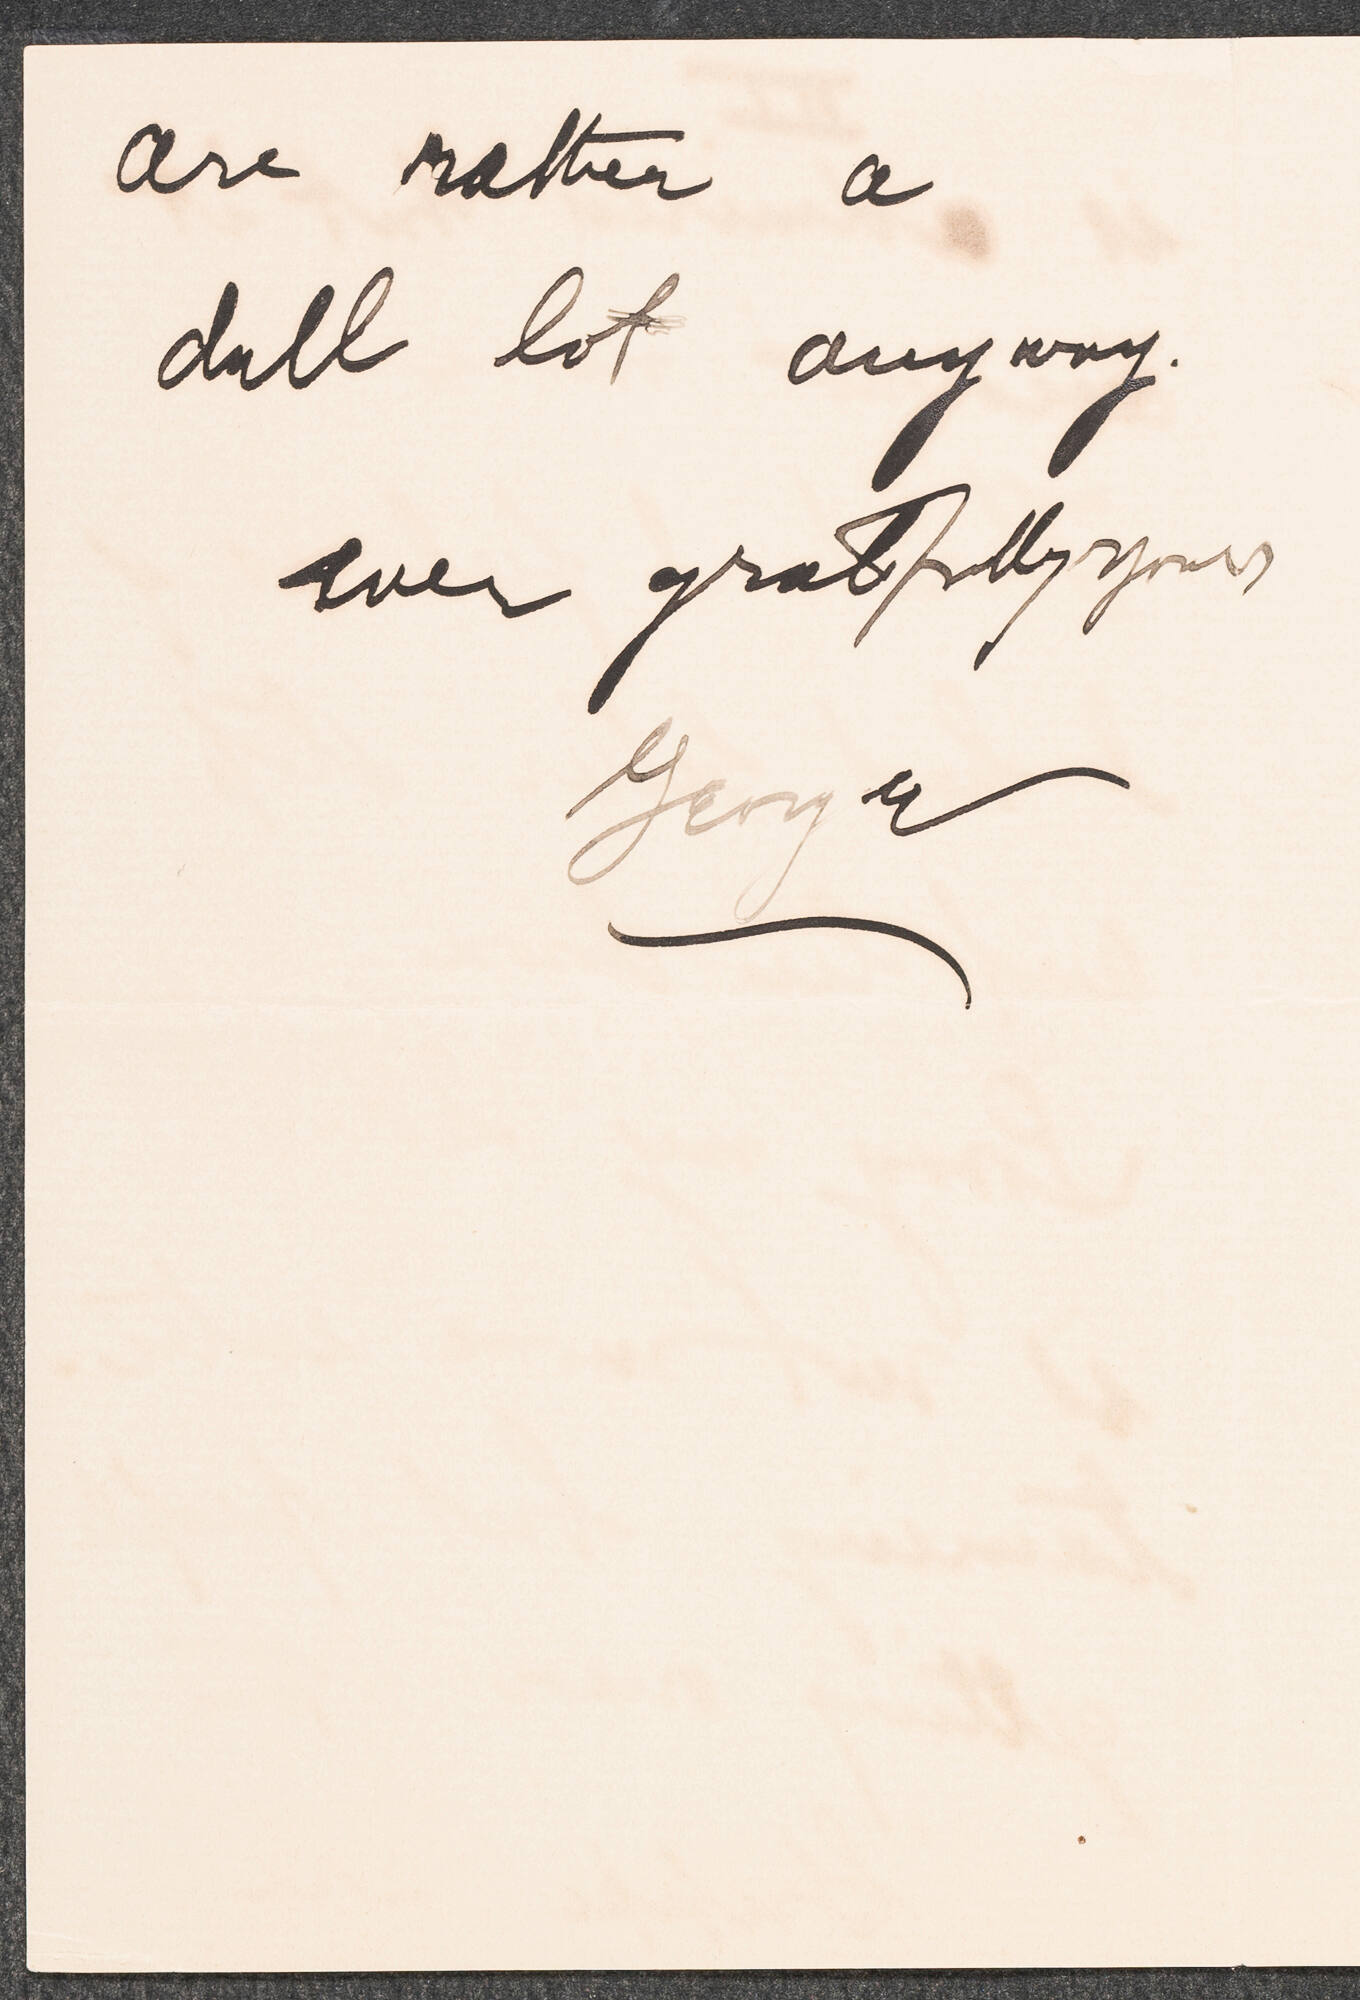 are rather a
dull lot anyway.
ever gratefully yours
George